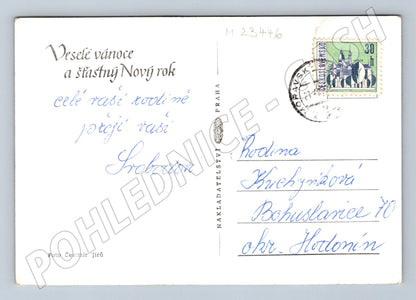 M 23446
Veselé vánoce
a šťastný Nový rok
celé vaší rodině
přejí vaši
Svobodovi
Foto Čestmír Jírů
NAKLADATELSTVÍ PRAHA
ČESKOSLOVENSKO
30 h
Rodina
Kuchyňková
Bohuslavice 70
okr. Hodonín
POHLEDNICE - CZECH